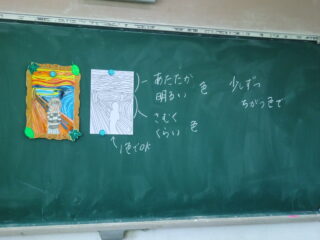 あたたか
明るい 色
さむく
くらい 色
少しずつ
ちがう色で
1色でOK